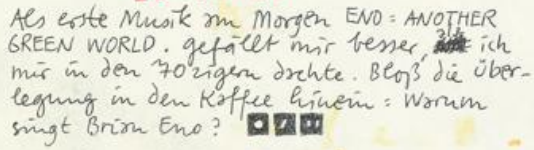 Als erste Musik am Morgen ENO: ANOTHER
GREEN WORLD. gefällt mir besser, als ich
mir in den 70zigern dachte. Bloß die Über-
legung in den Kaffee hinein: Warum
singt Brian Eno?